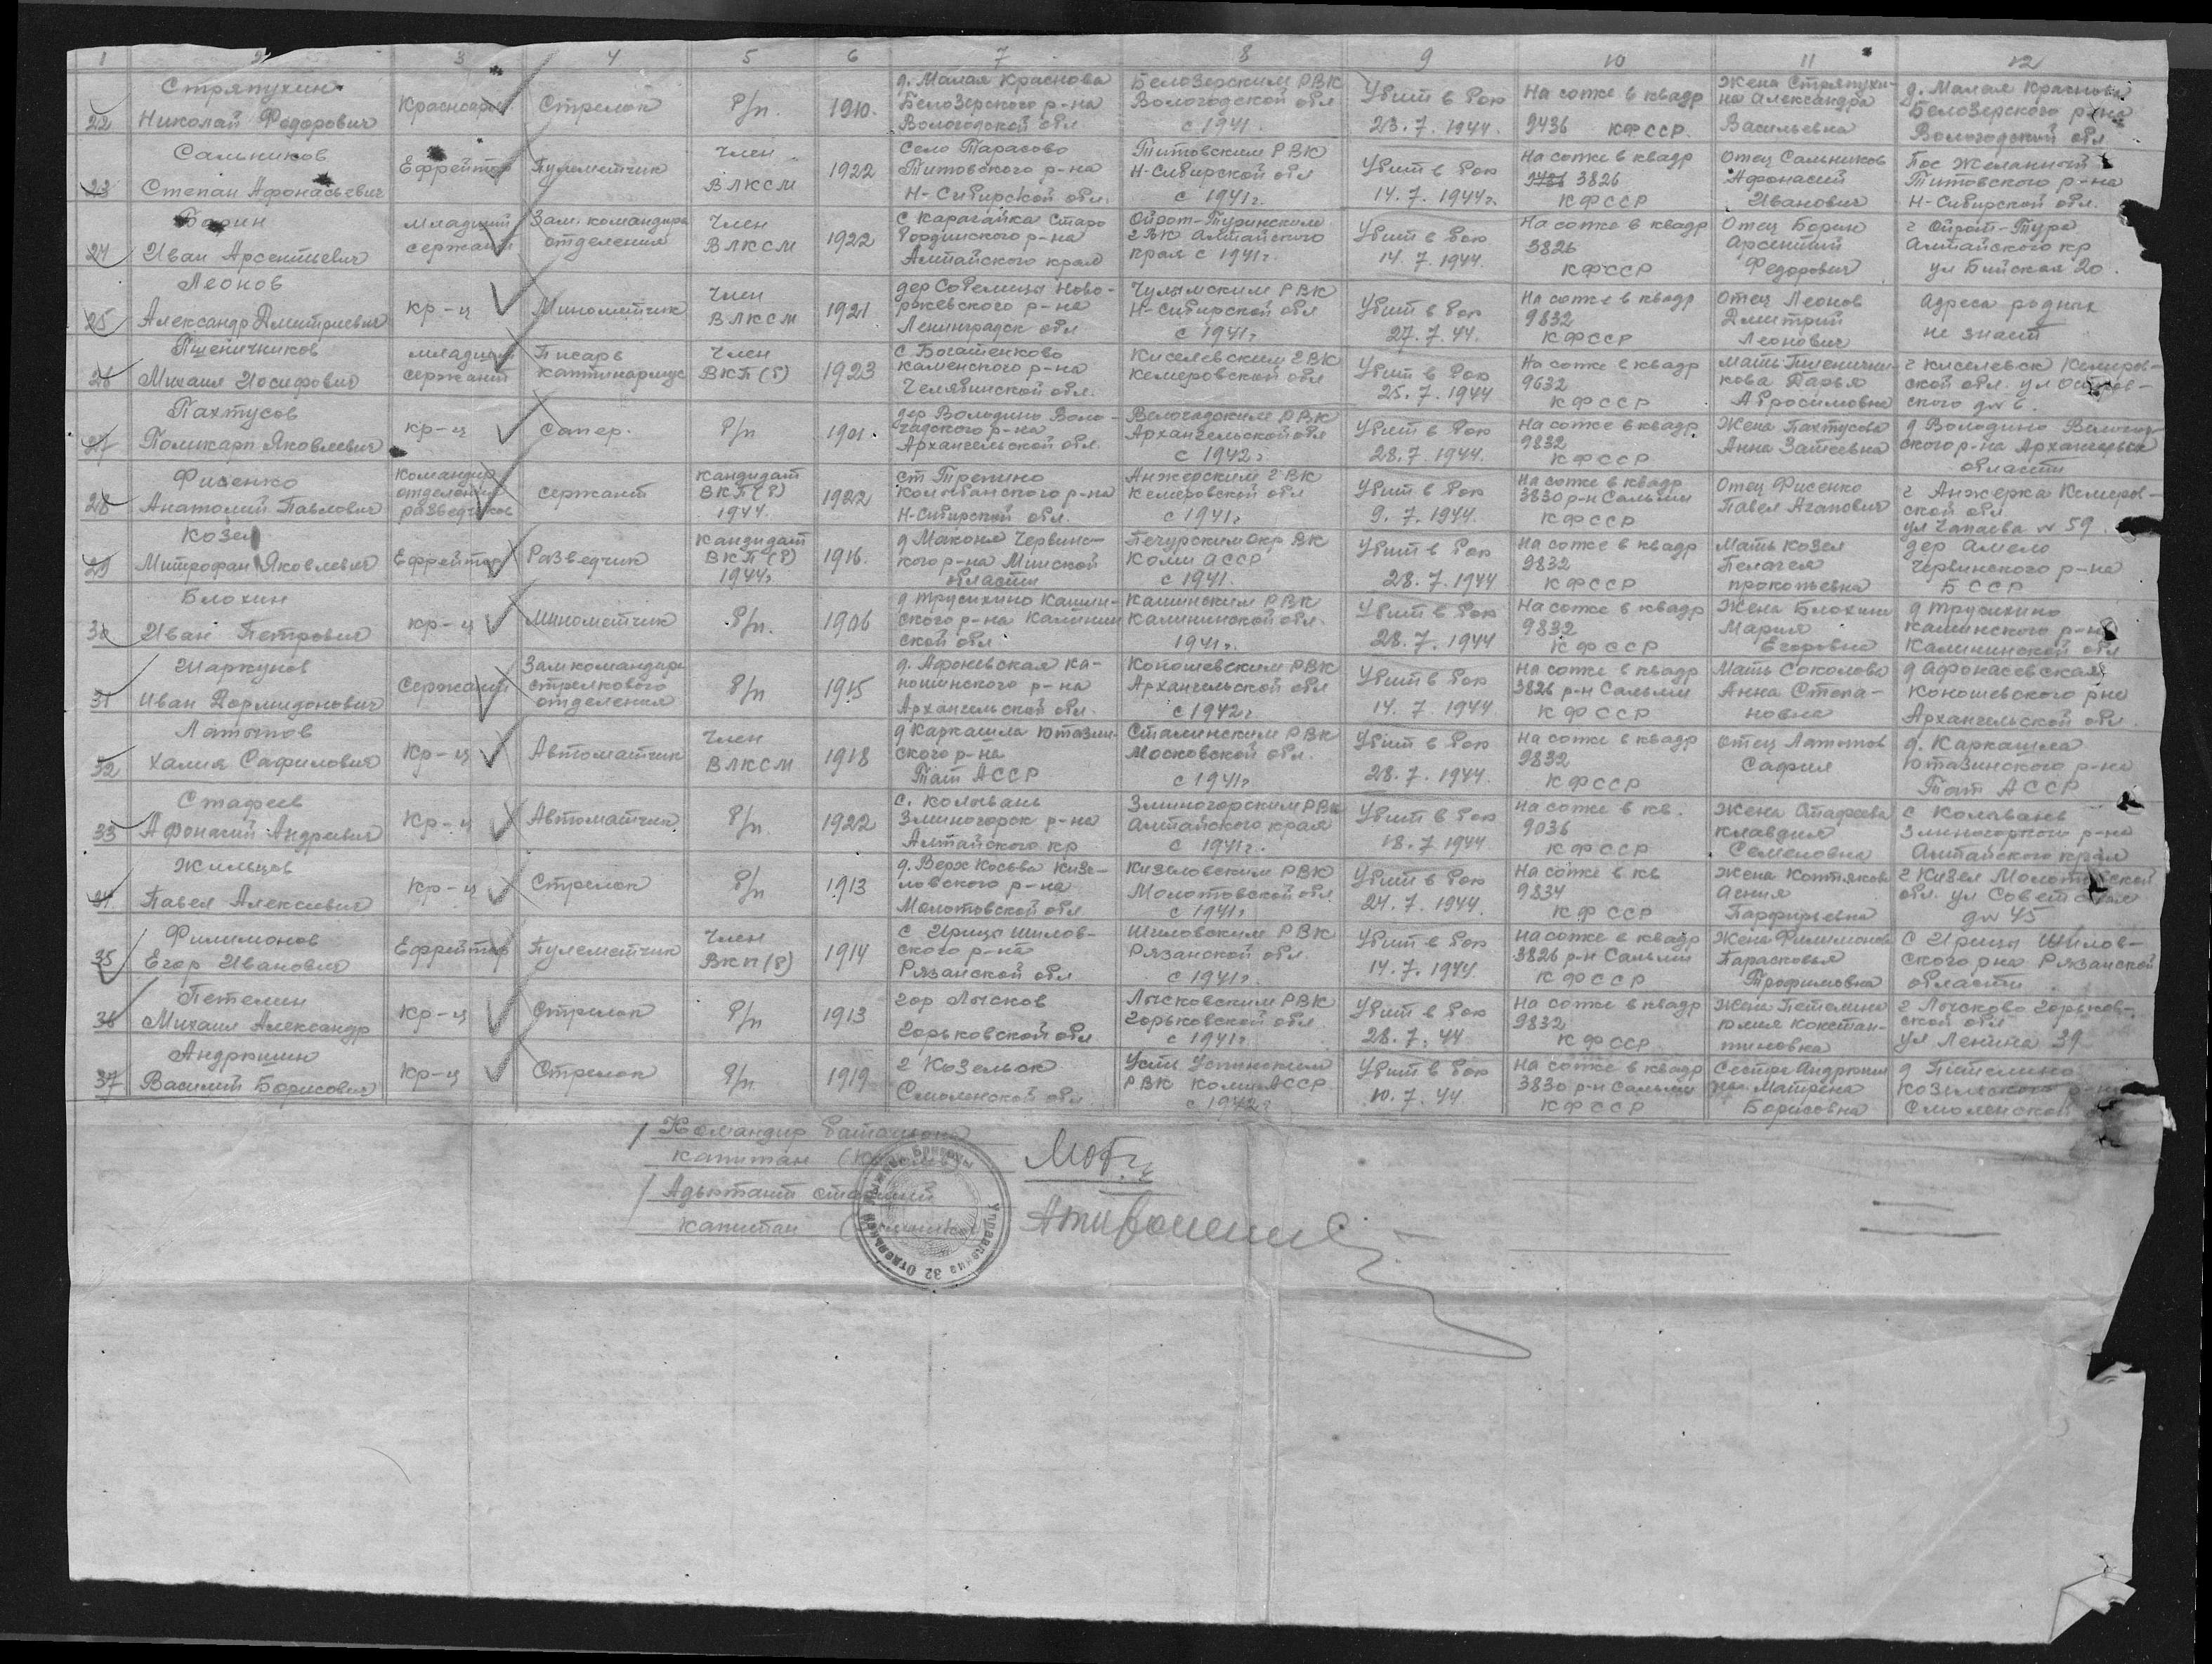 1 2 3 4 5 6 7 8 9 10 11 12
22 Стряпухин Николай Федорович Красноарм Стрелок б/п. 1910. д. Малая Краснова Белозерского р-на Вологодской обл Белозерским РВК Вологодской обл с 1941. Убит в бою 23.7.1944. На сопке в квадр 9436 КФССР. Жена Стряпухи-на Александра Васильевна д. Малая Краснова Белозерского р-на Вологодской обл
23 Сальников Степан Афонасьевич Ефрейтор Пулеметчик Член ВЛКСМ 1922 Село Тарасово Титовского р-на Н-Сибирской обл. Титовским РВК Н-Сибирской обл с 1941г. Убит в бою 14.7.1944г. На сопке в квадр 3826 КФССР Отец Сальников Афонасий Иванович Пос Желанный Титовского р-на Н-Сибирской обл.
24 Борин Иван Арсентьевич Младший сержант Зам. командира отделения Член ВЛКСМ 1922 с Карагайка Старо бординского р-на Алтайского края Ойрот-Туринским ГВК Алтайского края с 1941г. Убит в бою 14.7.1944. На сопке в квадр 3826 КФССР Отец Борин Арсентий Федорович г Ойрот-Тура Алтайского кр ул Бийская 20.
25 Леонов Александр Дмитриевич кр-ц Минометчик Член ВЛКСМ 1921 дер Соболицы Ново-ржевского р-на Ленинградск обл Чулымским РВК Н-Сибирской обл с 1941г Убит в бою 27.7.44. На сопке в квадр 9832 КФССР Отец Леонов Дмитрий Леонович Адреса родных не знает
26 Пшеничников Михаил Иосифович младший сержант Писарь каптинармус Член ВКП(б) 1923 с. Богатенково Каменского р-на Челябинской обл. Киселевским ГВК Кемеровской обл Убит в бою 25.7.1944 На сопке в квадр 9632 КФССР Мать Пшенични-кова Дарья Абросимовна г Киселевск Кемеров-ской обл. ул Остров-ского д№ 6.
27 Пахтусов Поликарп Яковлевич кр-ц сапер. б/п 1901. дер Володино Воло-годского р-на Архангельской обл. Велогодским РВК Архангельской обл с 1942г Убит в бою 28.7.1944. На сопке в квадр 9832 КФССР Жена Пахтусова Анна Затеевна д Володино Вологод-ского р-на Архангельск области
28 Фисенко Анатолий Павлович Командир отделения разведчиков сержант кандидат ВКП(б) 1944. 1922 ст Тропино Колыванского р-на Н-Сибирской обл. Анжерским ГВК Кемеровской обл с 1941г Убит в бою 9.7.1944. На сопке в квадр 3830 р-н Сальми КФССР Отец Фисенко Павел Агапович г Анжерка Кемеров-ской обл ул Чапаева № 59.
29 Козел Митрофан Яковлевич Ефрейтор Разведчик кандидат ВКП(б) 1944г 1916. д Маконя Червинс-кого р-на Минской области Печурским окр ВК Коми АССР с 1941. Убит в бою 28.7.1944 На сопке в квадр 9832 КФССР Мать Козел Пелагея прокопьевна дер Амело Червинского р-на БССР
30 Блохин Иван Петрович кр-ц минометчик б/п. 1906 д Трусихино Кашин-ского р-на Калинин ской обл Кашинским РВК Калининской обл. 1941г. Убит в бою 28.7.1944 На сопке в квадр 9832 КФССР Жена Блохина Мария Егоровна д Трусихино Кашинского р-на Калининской обл
31 Шаркунов Иван Дормидонович Сержант Зам командира стрелкового отделения б/п 1915 д. Афоневская Ка-ношинского р-на Архангельской обл. Коношевским РВК Архангельской обл с 1942г Убит в бою 14.7.1944 На сопке в квадр 3826 р-н Сальми КФССР Мать Соколова Анна Степа-новна д Афонасевская Коношевского рна Архангельской обл.
32 Латыпов Халия Сафилович Кр-ц Автоматчик Член ВЛКСМ 1918 д Каркашла Ютазин-ского р-на Тат АССР Сталинским РВК Московской обл. с 1941г Убит в бою 28.7.1944. На сопке в квадр 9832 КФССР Отец Латыпов Сафил д. Каркашла Ютазинского р-на Тат АССР
33 Стафеев Афонасий Андреевич Кр-ц Автоматчик б/п. 1922 с. Колывань Змииногорск р-на Алтайского кр Змииногорским РВК Алтайского края с 1941г. Убит в бою 18.7.1944 На сопке в кв. 9036 КФССР Жена Стафеева Клавдия Семеновна с Колывань Змииногорского р-на Алтайского края
34 Жильцов Павел Алексеевич Кр-ц Стрелок б/п 1913 д. Верх Косьва Кизе-ловского р-на Молотовской обл Кизеловским РВК Молотовской обл. с 1941г Убит в бою 24.7.1944. На сопке в кв 9834 КФССР Жена Коттякова Агния Парфирьевна г Кизел Молотовской обл. ул Советская д№ 45
35 Филимонов Егор Иванович Ефрейтор Пулеметчик Член ВКП(б) 1914 с Ирицы Шилов-ского р-на Рязанской обл Шиловским РВК Рязанской обл. с 1941г Убит в бою 14.7.1944. На сопке в квадр 3826 р-н Сальми КФССР Жена Филимонова Парасковья Трофимовна с Ирицы Шилов-ского рна Рязанской области
36 Петелин Михаил Александр Кр-ц Стрелок б/п 1913 гор Лысков Горьковской обл Лысковским РВК Горьковской обл. с 1941г Убит в бою 28.7.44 На сопке в квадр 9832 КФССР Жена Петелина Юлия Констан-тиновна г Лысково Горьков-ской обл ул Ленина 39
37 Андрюшин Василий Борисович Кр-ц Стрелок б/п. 1919 г Козельск Смоленской обл. Усть Устинским РВК Коми АССР с 1942г Убит в бою 10.7.44. На сопке в квадр 3830 р-н Сальми КФССР Сестра Андрюшина Матрена Борисовна д Козельского р-на Смоленской
Командир батальона
капитан
Адъютант старший
капитан
Управление 32 Отдельной Бригады